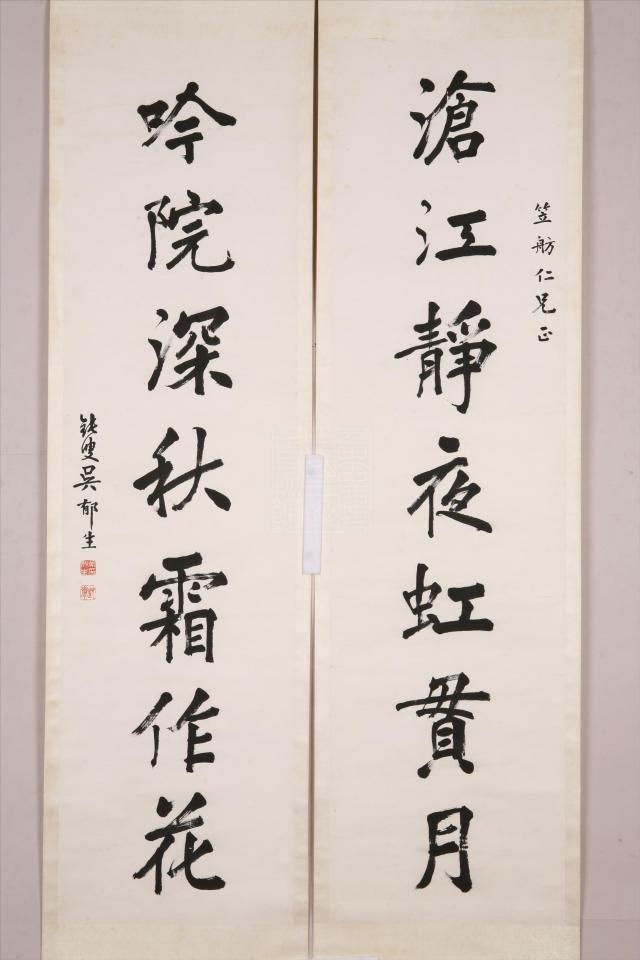 笠舫仁兄正
滄江靜夜虹貫月
吟院深秋霜作花
鈍叟吳郁生